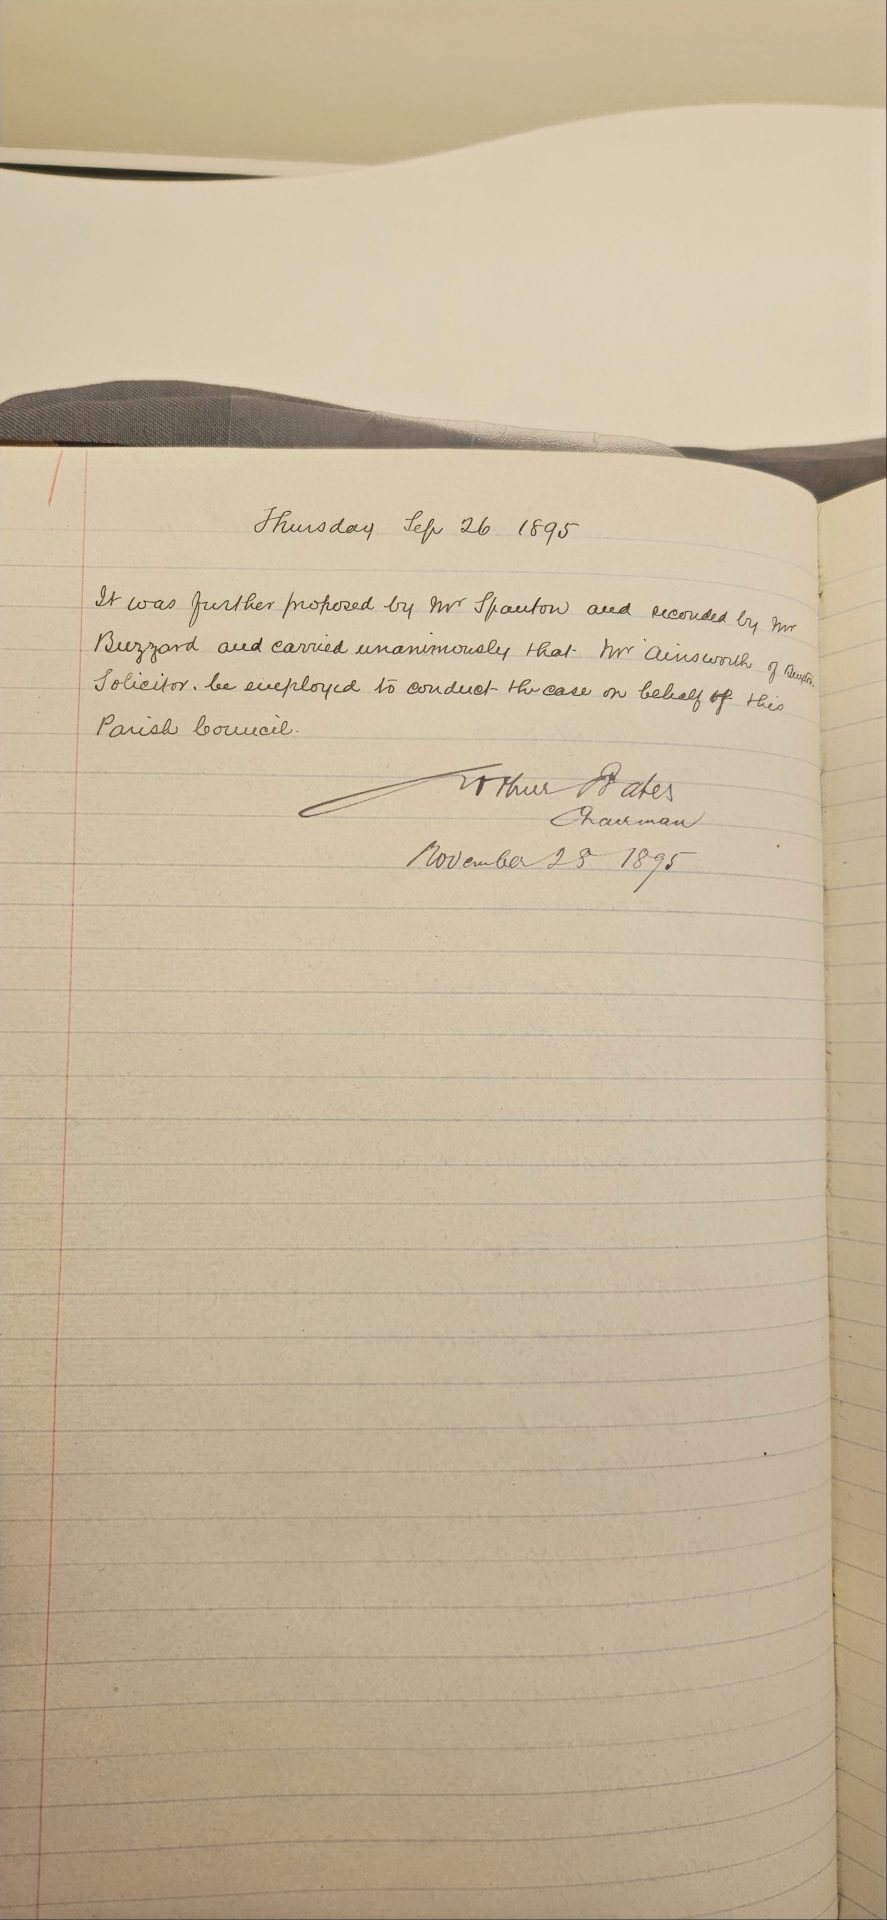 Thursday Sep 26 1895
It was further proposed by Mr Spanton and seconded by Mr
Buzzard and carried unanimously that Mr Ainsworth of
Solicitor. be employed to conduct the case on behalf of this
Parish Council.
Arthur Bates
Chairman
November 28 1895